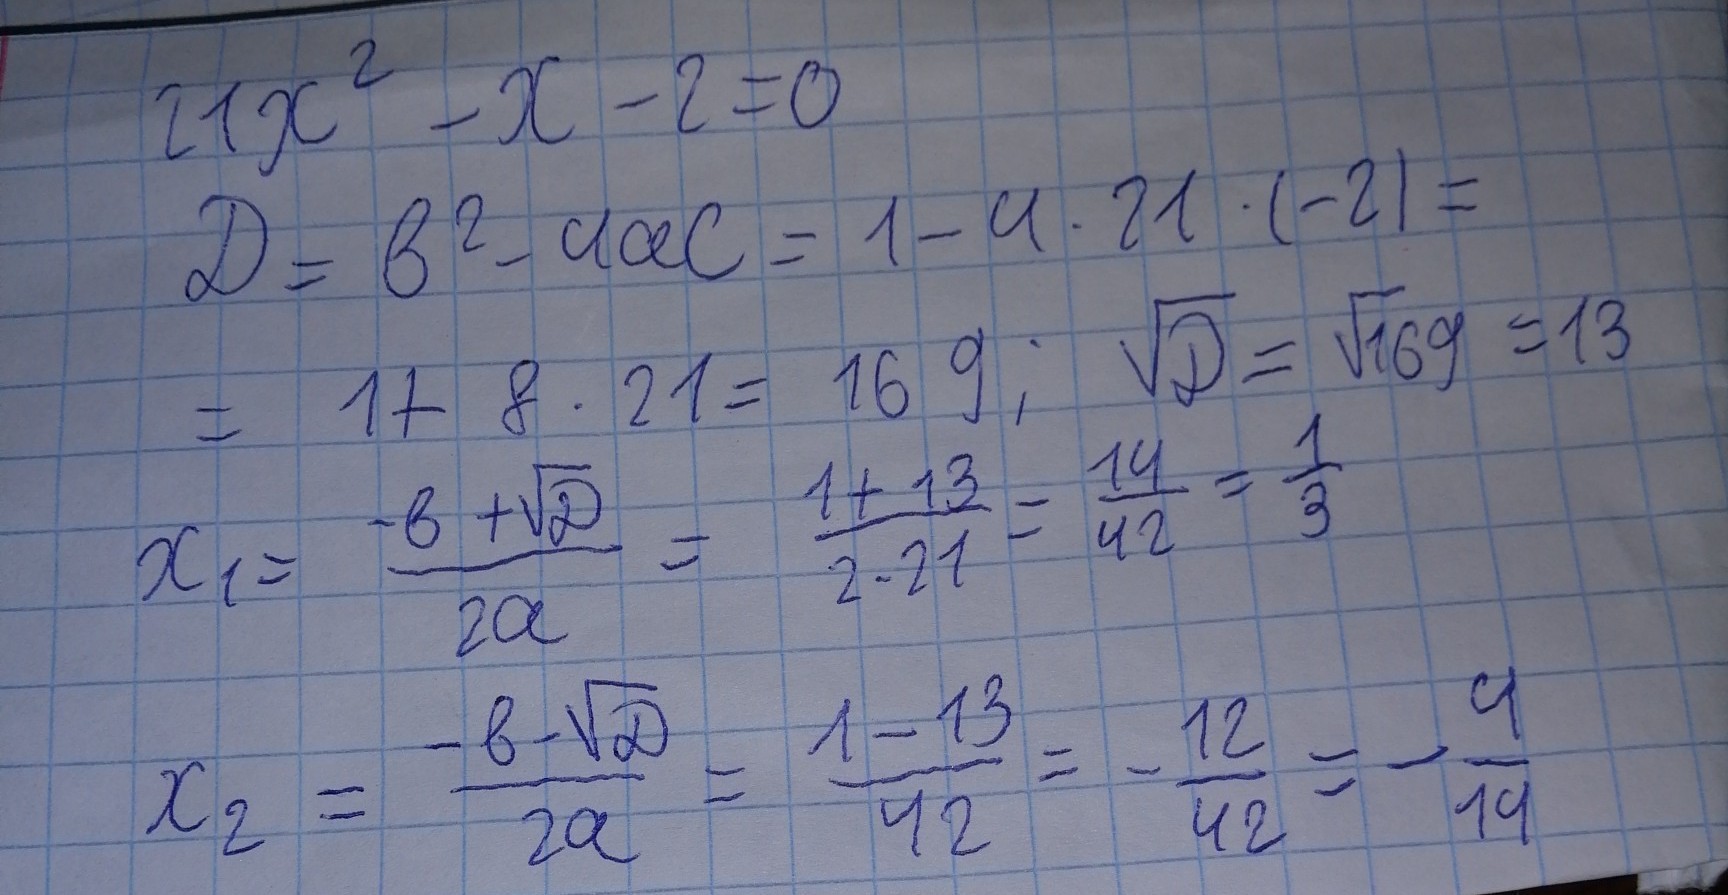 21x² - x - 2 = 0
D = b² - 4ac = 1 - 4 · 21 · (-2) =
= 1 + 8 · 21 = 169; √D = √169 = 13
x₁ = (-b + √D)/(2a) = (1 + 13)/(2 · 21) = 14/42 = 1/3
x₂ = (-b - √D)/(2a) = (1 - 13)/42 = -12/42 = -4/14